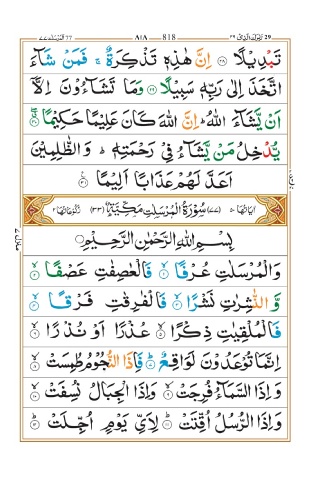 تبٰرك الذی ٢٩ 818 ٨١٨ الدهر ٧٦
تَبْدِيْلًا ۝٢٨ اِنَّ هٰذِهٖ تَذْكِرَةٌ ۚ فَمَنْ شَآءَ
اتَّخَذَ اِلٰى رَبِّهٖ سَبِيْلًا ۝٢٩ وَمَا تَشَآءُوْنَ اِلَّاۤ
اَنْ يَّشَآءَ اللّٰهُ ؕ اِنَّ اللّٰهَ كَانَ عَلِيْمًا حَكِيْمًا ۝٣٠
يُّدْخِلُ مَنْ يَّشَآءُ فِيْ رَحْمَتِهٖ ؕ وَالظّٰلِمِيْنَ
اَعَدَّ لَهُمْ عَذَابًا اَلِيْمًا ۝٣١
اٰيَاتُهَا ٥٠ (٧٧) سُوْرَةُ الْمُرْسَلٰتِ مَكِّيَّةٌ (٣٣) رُكُوْعَاتُهَا ٢
بِسْمِ اللّٰهِ الرَّحْمٰنِ الرَّحِيْمِ
وَالْمُرْسَلٰتِ عُرْفًا ۝١ فَالْعٰصِفٰتِ عَصْفًا ۝٢
وَّالنّٰشِرٰتِ نَشْرًا ۝٣ فَالْفٰرِقٰتِ فَرْقًا ۝٤
فَالْمُلْقِيٰتِ ذِكْرًا ۝٥ عُذْرًا اَوْ نُذْرًا ۝٦
اِنَّمَا تُوْعَدُوْنَ لَوَاقِعٌ ۝٧ فَاِذَا النُّجُوْمُ طُمِسَتْ ۝٨
وَاِذَا السَّمَآءُ فُرِجَتْ ۝٩ وَاِذَا الْجِبَالُ نُسِفَتْ ۝١٠
وَاِذَا الرُّسُلُ اُقِّتَتْ ۝١١ لِاَيِّ يَوْمٍ اُجِّلَتْ ۝١٢